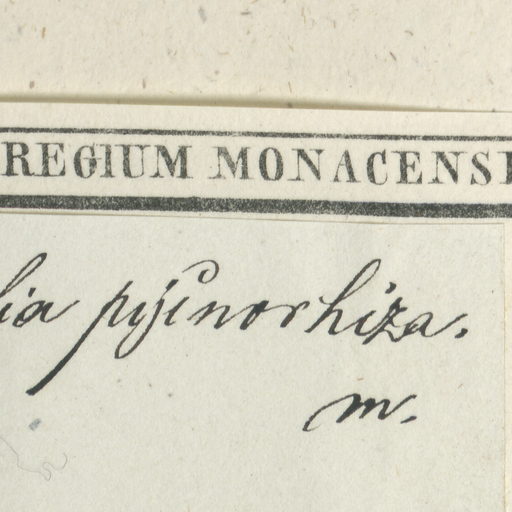 REGIUM MONACENSE
lia pycnorhiza.
m.